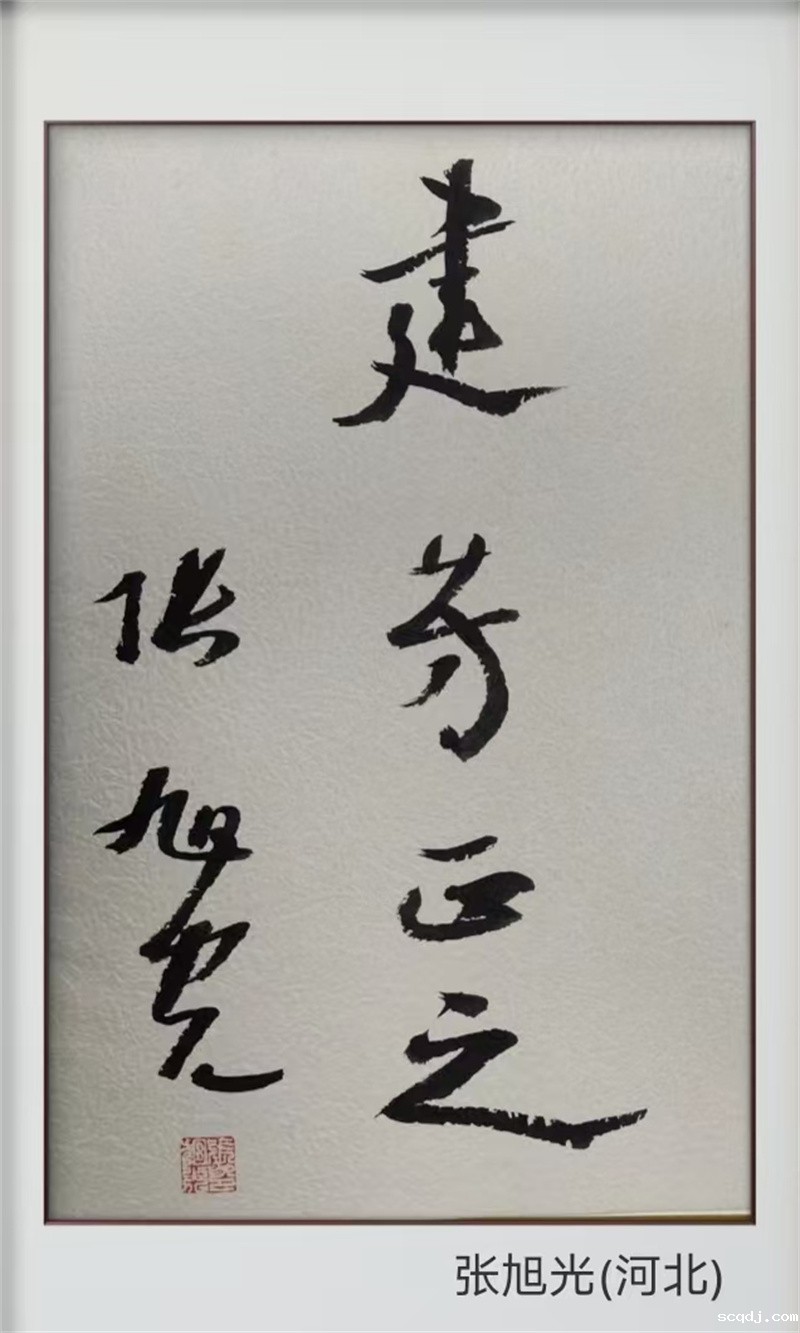 建芳正之
张旭光
张旭光(河北)
scqdj.com